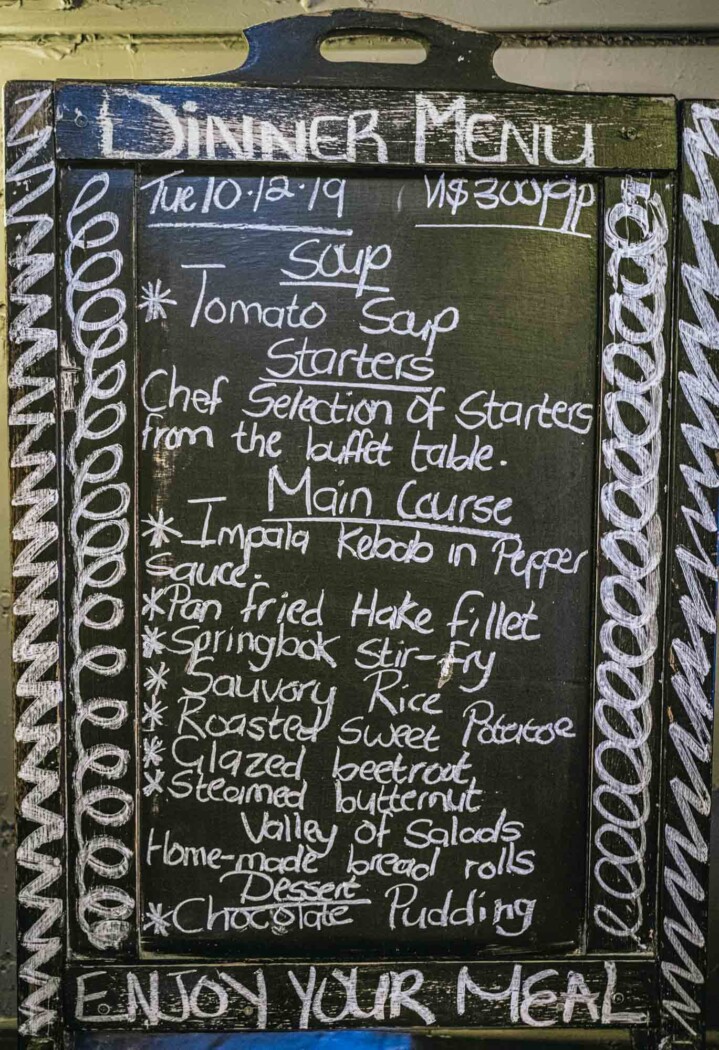 DINNER MENU
Tue 10.12.19 N$300 pp
Soup
* Tomato Soup
Starters
Chef Selection of Starters
from the buffet table.
Main Course
* Impala Kebab in Pepper
Sauce.
* Pan fried Hake fillet
* Springbok Stir-fry
* Sauvory Rice
* Roasted Sweet Potatoe
* Glazed beetroot
* Steamed butternut
Valley of Salads
Home-made bread rolls
Dessert
* Chocolate Pudding
ENJOY YOUR MEAL